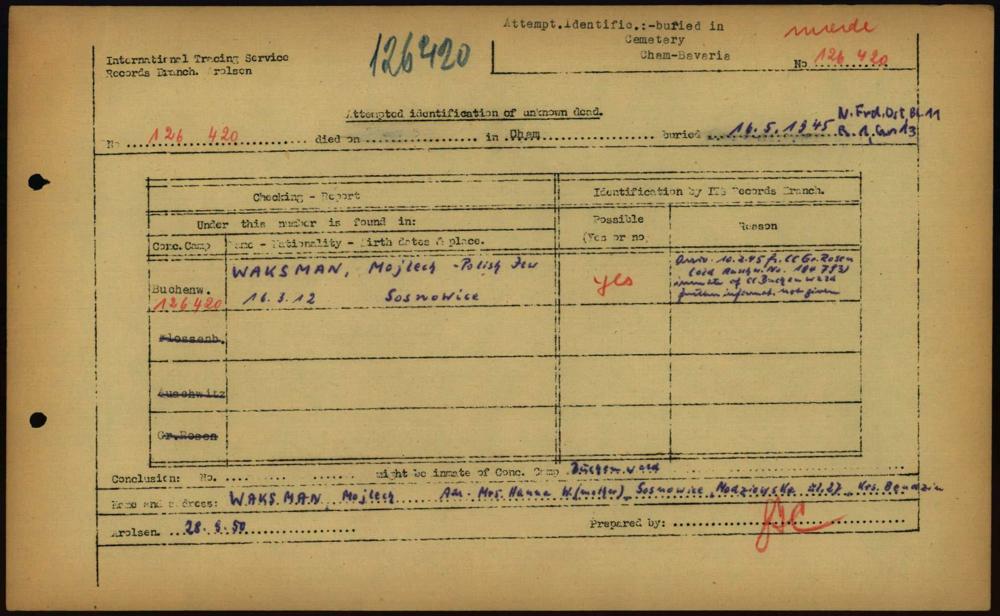 Attempt.Identific.:-buried in
Cemetery
Cham-Bavaria
No 126 420
126420
International Tracing Service
Records Branch. Arolsen
Attempted identification of unknown dead.
No 126 420 died on in Cham buried 16.5.1945
Checking - Report
Identification by ITS Records Branch.
Under this number is found in:
Possible
(Yes or no)
Reason
Conc.Camp
Name - Nationality - Birth dates & place.
Buchenw.
126420
WAKSMAN, Mojlech - Polish Jew
16.3.12 Sosnowice
yes
Arriv. 10.2.45 fr. CC Gr. Rosen
(old Auschw. No. 184 793)
inmate of CC Buchenwald
further informat. not given
Flossenb.
Auschwitz
Gr.Rosen
Conclusion: No. might be inmate of Conc. Camp Buchenwald
Name and address: WAKSMAN Mojlech Mrs. Hanna W. (mother) Sosnowice,
Arolsen. 28.9.50
Prepared by: